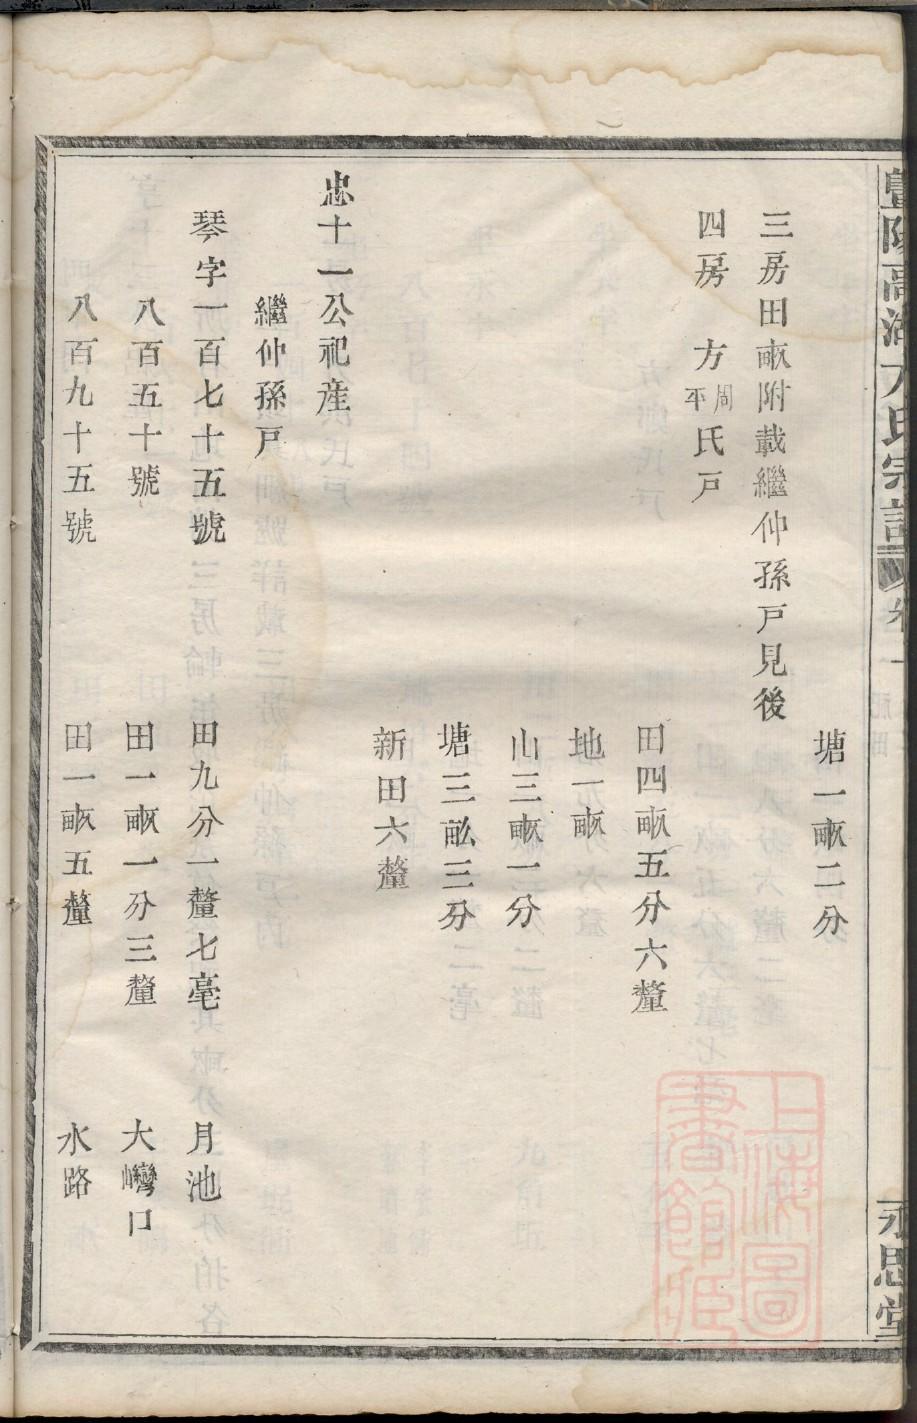 塘一畝二分
三房田畝附載繼仲孫戸見後
四房　方周平氏戸
田四畝五分六釐
地一畝
山三畝一分
塘三畝三分
新田六釐
忠十一公祀産
繼仲孫戸
琴字一百七十五號　田九分一釐七毫　月池
八百五十號　田一畝一分三釐　大巒口
八百九十五號　田一畝五釐　水路
永思堂
上海圖書館藏